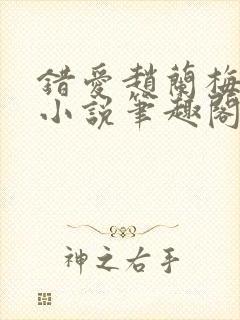 錯愛趙蘭梅
小說筆趣閣
神之右手